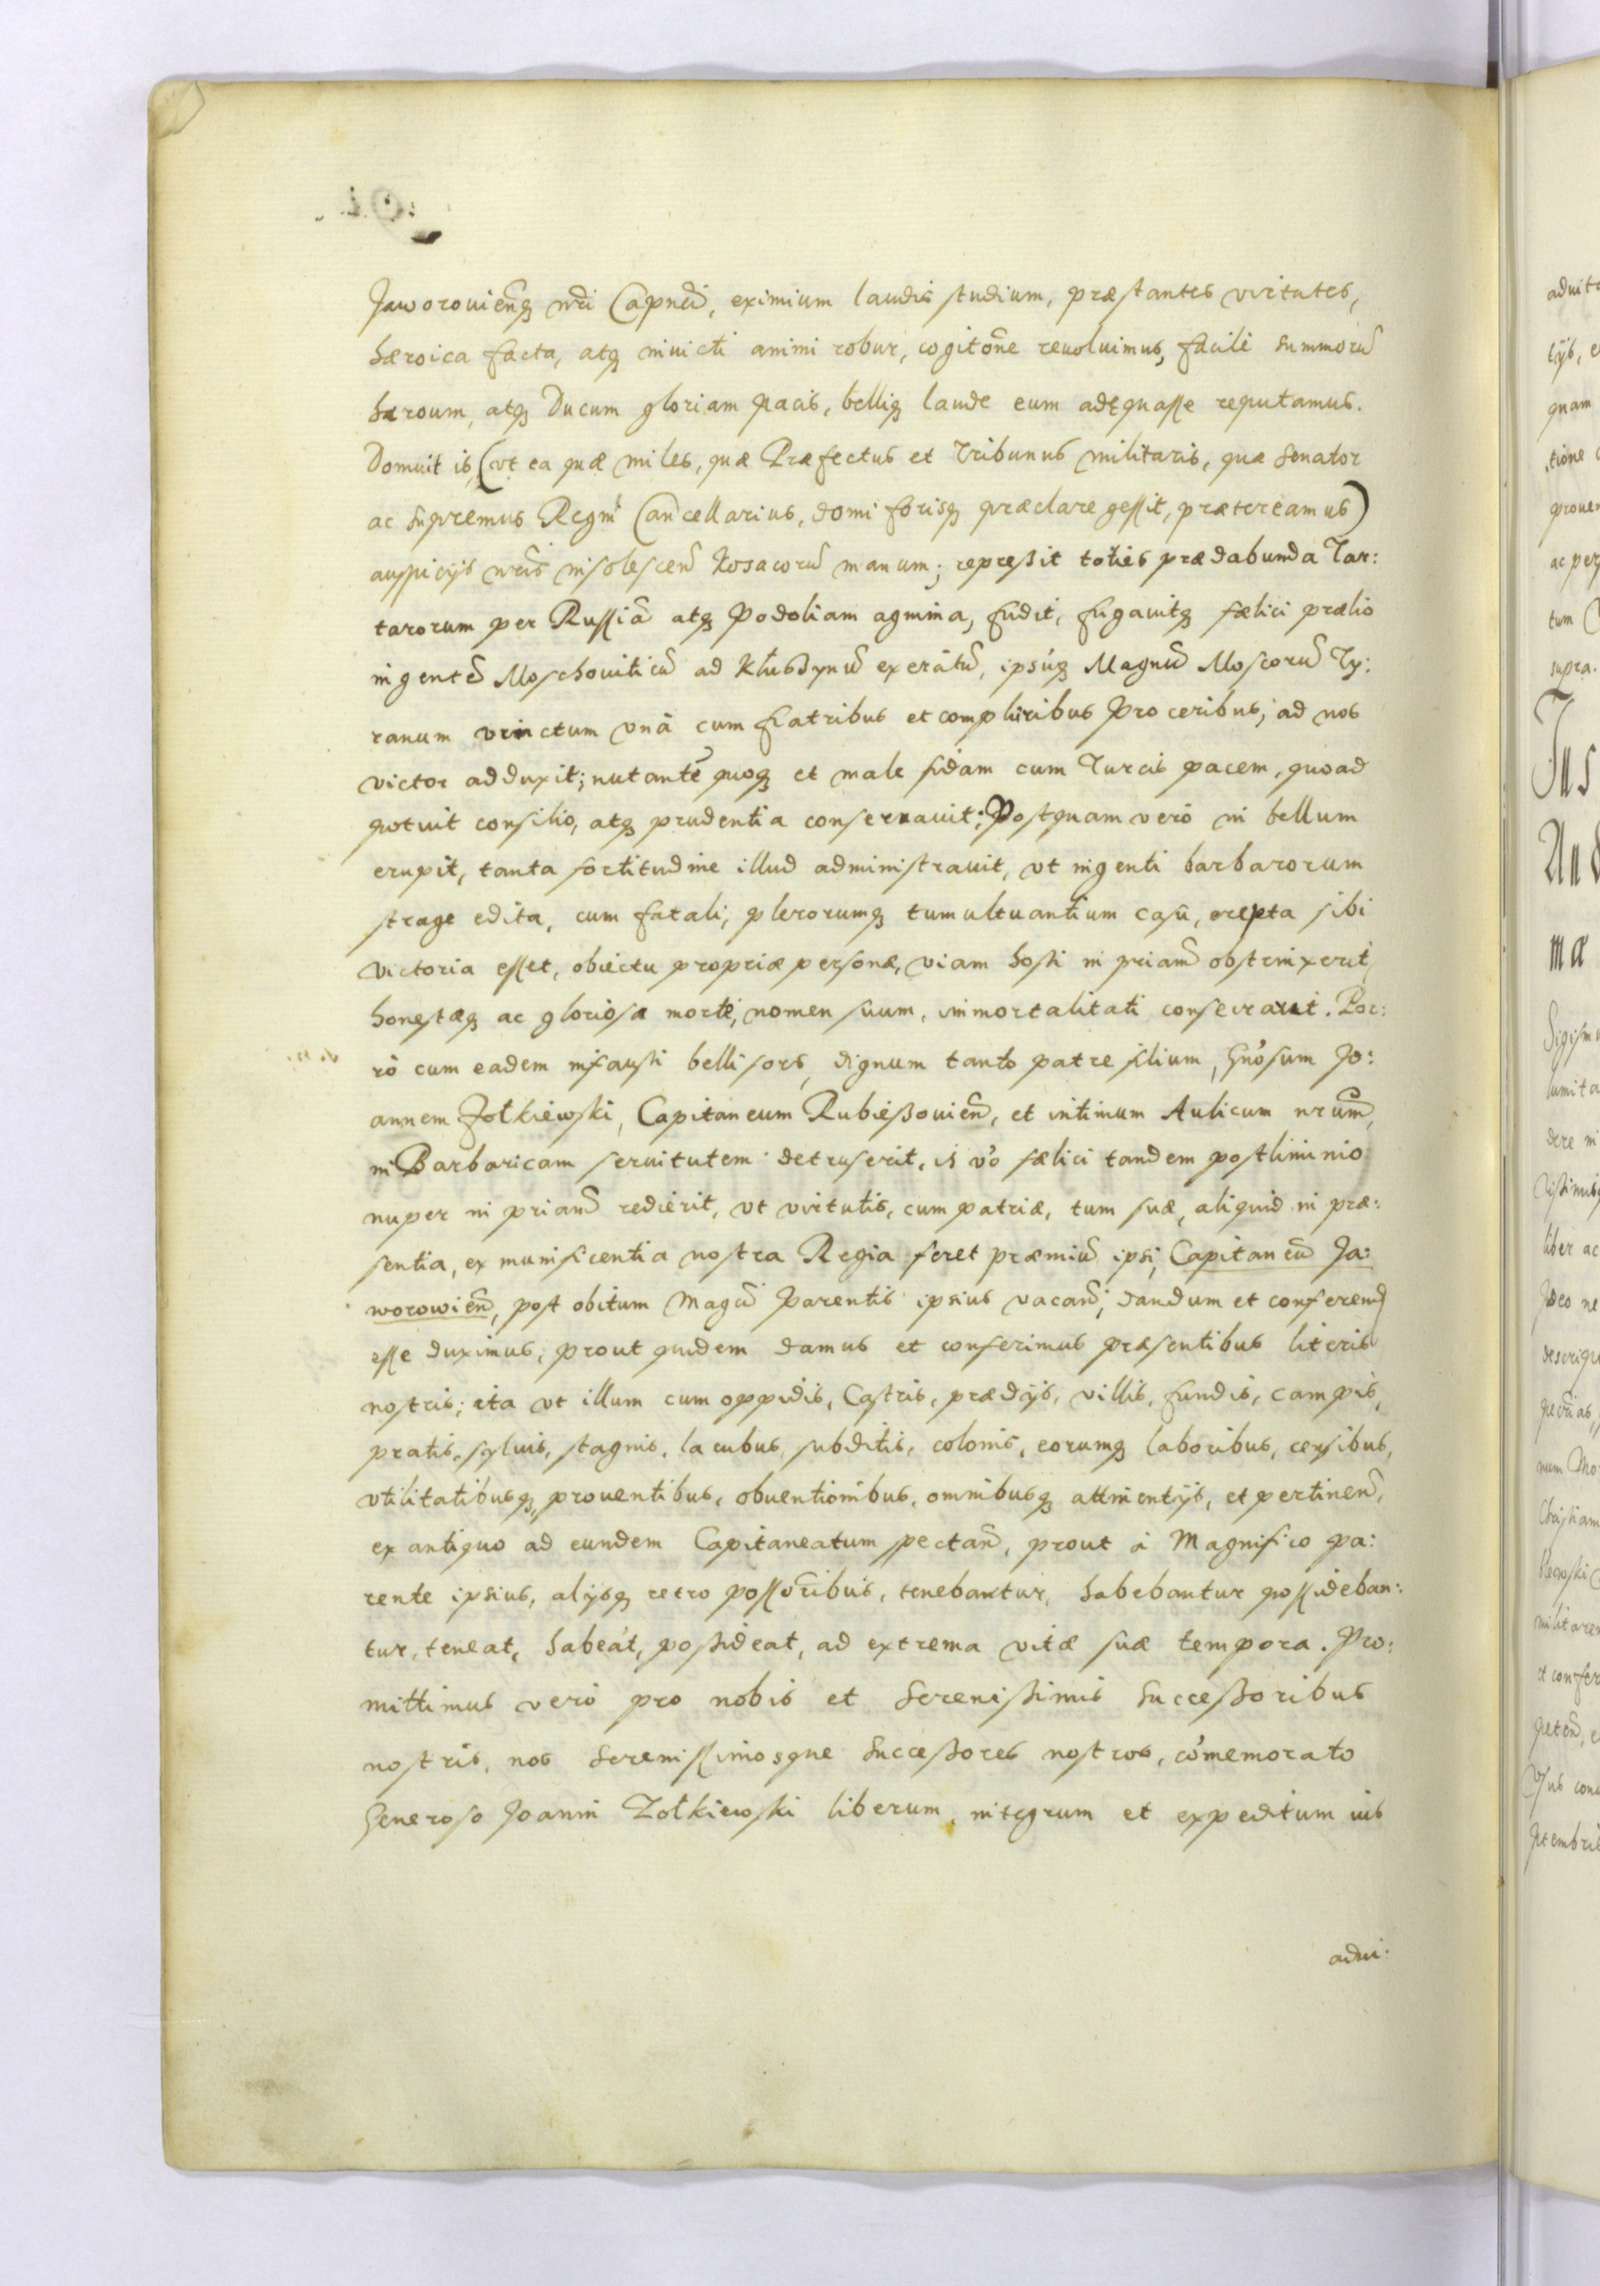 Jaworouien̄q̨ nr̄i Capnei, eximium laudis studium, præstantes virtutes,
hæroica facta, atq̨ inuicti animi robur, cogitõne reuoluimus, facilè summorū
hæroum, atq̨ Ducum gloriam pacis, belliq̨ laude eum adęquasse reputamus.
Domuit is, (vt ea quæ miles, quæ Præfectus et Tribunus militaris, quæ Senator
ac supremus Regni Cancellarius, domi forisq̨ præclare gessit, prætereamus)
auspicijs nr̄is insolescen̄ Kosacorū manum; repreßit toties prædabunda Tar:
tarorum per Russiā atq̨ Podoliam agmina, fudit, fugauitq̨ fælici prælio
ingentē Moschouiticū ad Kłusdynū exerātū, ipsúq̨ Magnū Moscorū Ty:
ranum vinctum vnà cum fratribus et compluribus Proceribus, ad nos
victor adduxit; nutantē quoq̨ et male fidam cum Turcis pacem, quoad
potuit consilio, atq̨ prudentia conseruauit; Postquam verò in bellum
erupit, tanta fortitudine illud administrauit, vt ingenti barbarorum
strage edita, cum fatali, plerorumq̨ tumultuantium casū, erepta sibi
victoria esset, obiectu propriæ personæ, viam hosti in priam̄ obstrinxerit,
honestæq̨ ac gloriosæ morte, nomen suum, immortalitati consecrauit. Por:
rò cum eadem infausti belli sors, dignum tanto patre filium, Gn̄osum Jo:
annem Żołkiewski, Capitaneum Rubießouien̄, et intimum Aulicum nrūm,
in Barbaricam seruitutem detruserit, is v̄o fælici tandem postliminio
nuper in priam̄ redierit, vt virtutis, cum patriæ, tum suæ, aliquid in præ:
sentia, ex munificentia nostra Regia feret præmiū ipsi, Capitaneū Ja:
worowien̄, post obitum Magci Parentis ipsius vacan̄, dandum et conferend̄
esse duximus, prout quidem damus et conferimus præsentibus literis
nostris; ita vt illum cum oppidis, Castris, prædijs, villis, fundis, campis,
pratis, syluis, stagnis, lacubus, subditis, colonis, eorumq̨ laboribus, censibus,
vtilitatibusq̨, prouentibus, obuentionibus, omnibusq̨ attinentijs, et pertinen̄,
ex antiquo ad eundem Capitaneatum spectan̄, prout à Magnifico pa:
rente ipsius, alijsq̨ retro possor̄ibus, tenebantur, habebantur possideban:
tur, teneat, habeat, poßideat, ad extrema vitæ suæ tempora. Pro:
mittimus verò pro nobis et Serenißimis Succeßoribus
nostris, nos Serenissimosque Succeßores nostros, cōmemorato
Generoso Joanni Żołkiewski liberum, integrum et expeditum ius
adui: